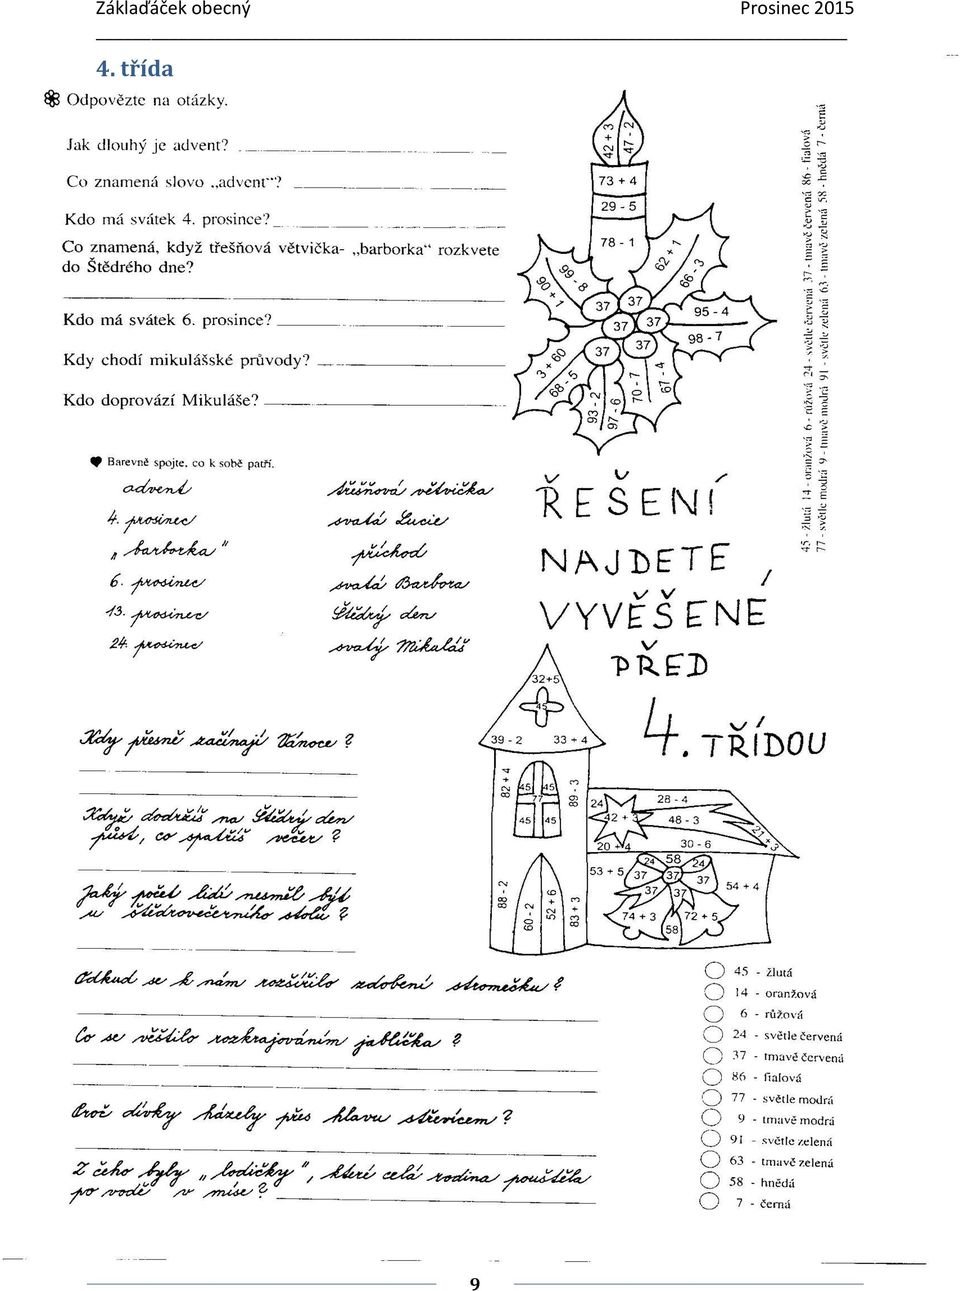 Základáček obecný Prosinec 2015
4. třída
Odpovězte na otázky.
Jak dlouhý je advent?
Co znamená slovo „advent"?
Kdo má svátek 4. prosince?
Co znamená, když třešňová větvička- „barborka" rozkvete
do Štědrého dne?
Kdo má svátek 6. prosince?
Kdy chodí mikulášské průvody?
Kdo doprovází Mikuláše?
42 + 3
47 - 2
73 + 4
29 - 5
78 - 1
62 + 1
66 - 3
99 - 8
90 + 1
37 37
37 37
37 37
95 - 4
98 - 7
3 + 60
68 - 5
93 - 2
97 - 6
70 - 7
67 - 4
45 - žlutá 14 - oranžová 6 - růžová 24 - světle červená 37 - tmavě červená 86 - fialová
77 - světle modrá 9 - tmavě modrá 91 - světle zelená 63 - tmavě zelená 58 - hnědá 7 - černá
Barevně spojte, co k sobě patří.
advent třešňová větvička
4. prosinec svatá Lucie
„barborka" příchod
6. prosinec svatá Barbora
13. prosinec Štědrý den
24. prosinec svatý Mikuláš
ŘEŠENÍ
NAJDETE
VYVĚŠENÉ
PŘED
4. TŘÍDOU
Kdy přesně začínají Vánoce?
Když dodržíš na Štědrý den
půst, co spatříš večer?
Jaký počet lidí nesměl být
u štědrovečerního stolu?
32+5
45
39 - 2 33 + 4
82 + 4
45 45
77
45 45
89 - 3
88 - 2
60 - 2
52 + 6
83 + 3
24
42 + 3
20 + 4
28 - 4
48 - 3
30 - 6
21 + 3
53 + 5
24 58 24
37 37 37
37 37
54 + 4
74 + 3 72 + 5
58
Odkud se k nám rozšířilo zdobení stromečku?
Co se věštilo rozkrajováním jablíčka?
Proč dívky házely přes hlavu střevícem?
Z čeho byly „lodičky", které celá rodina pouštěla
po vodě v míse?
45 - žlutá
14 - oranžová
6 - růžová
24 - světle červená
37 - tmavě červená
86 - fialová
77 - světle modrá
9 - tmavě modrá
91 - světle zelená
63 - tmavě zelená
58 - hnědá
7 - černá
9